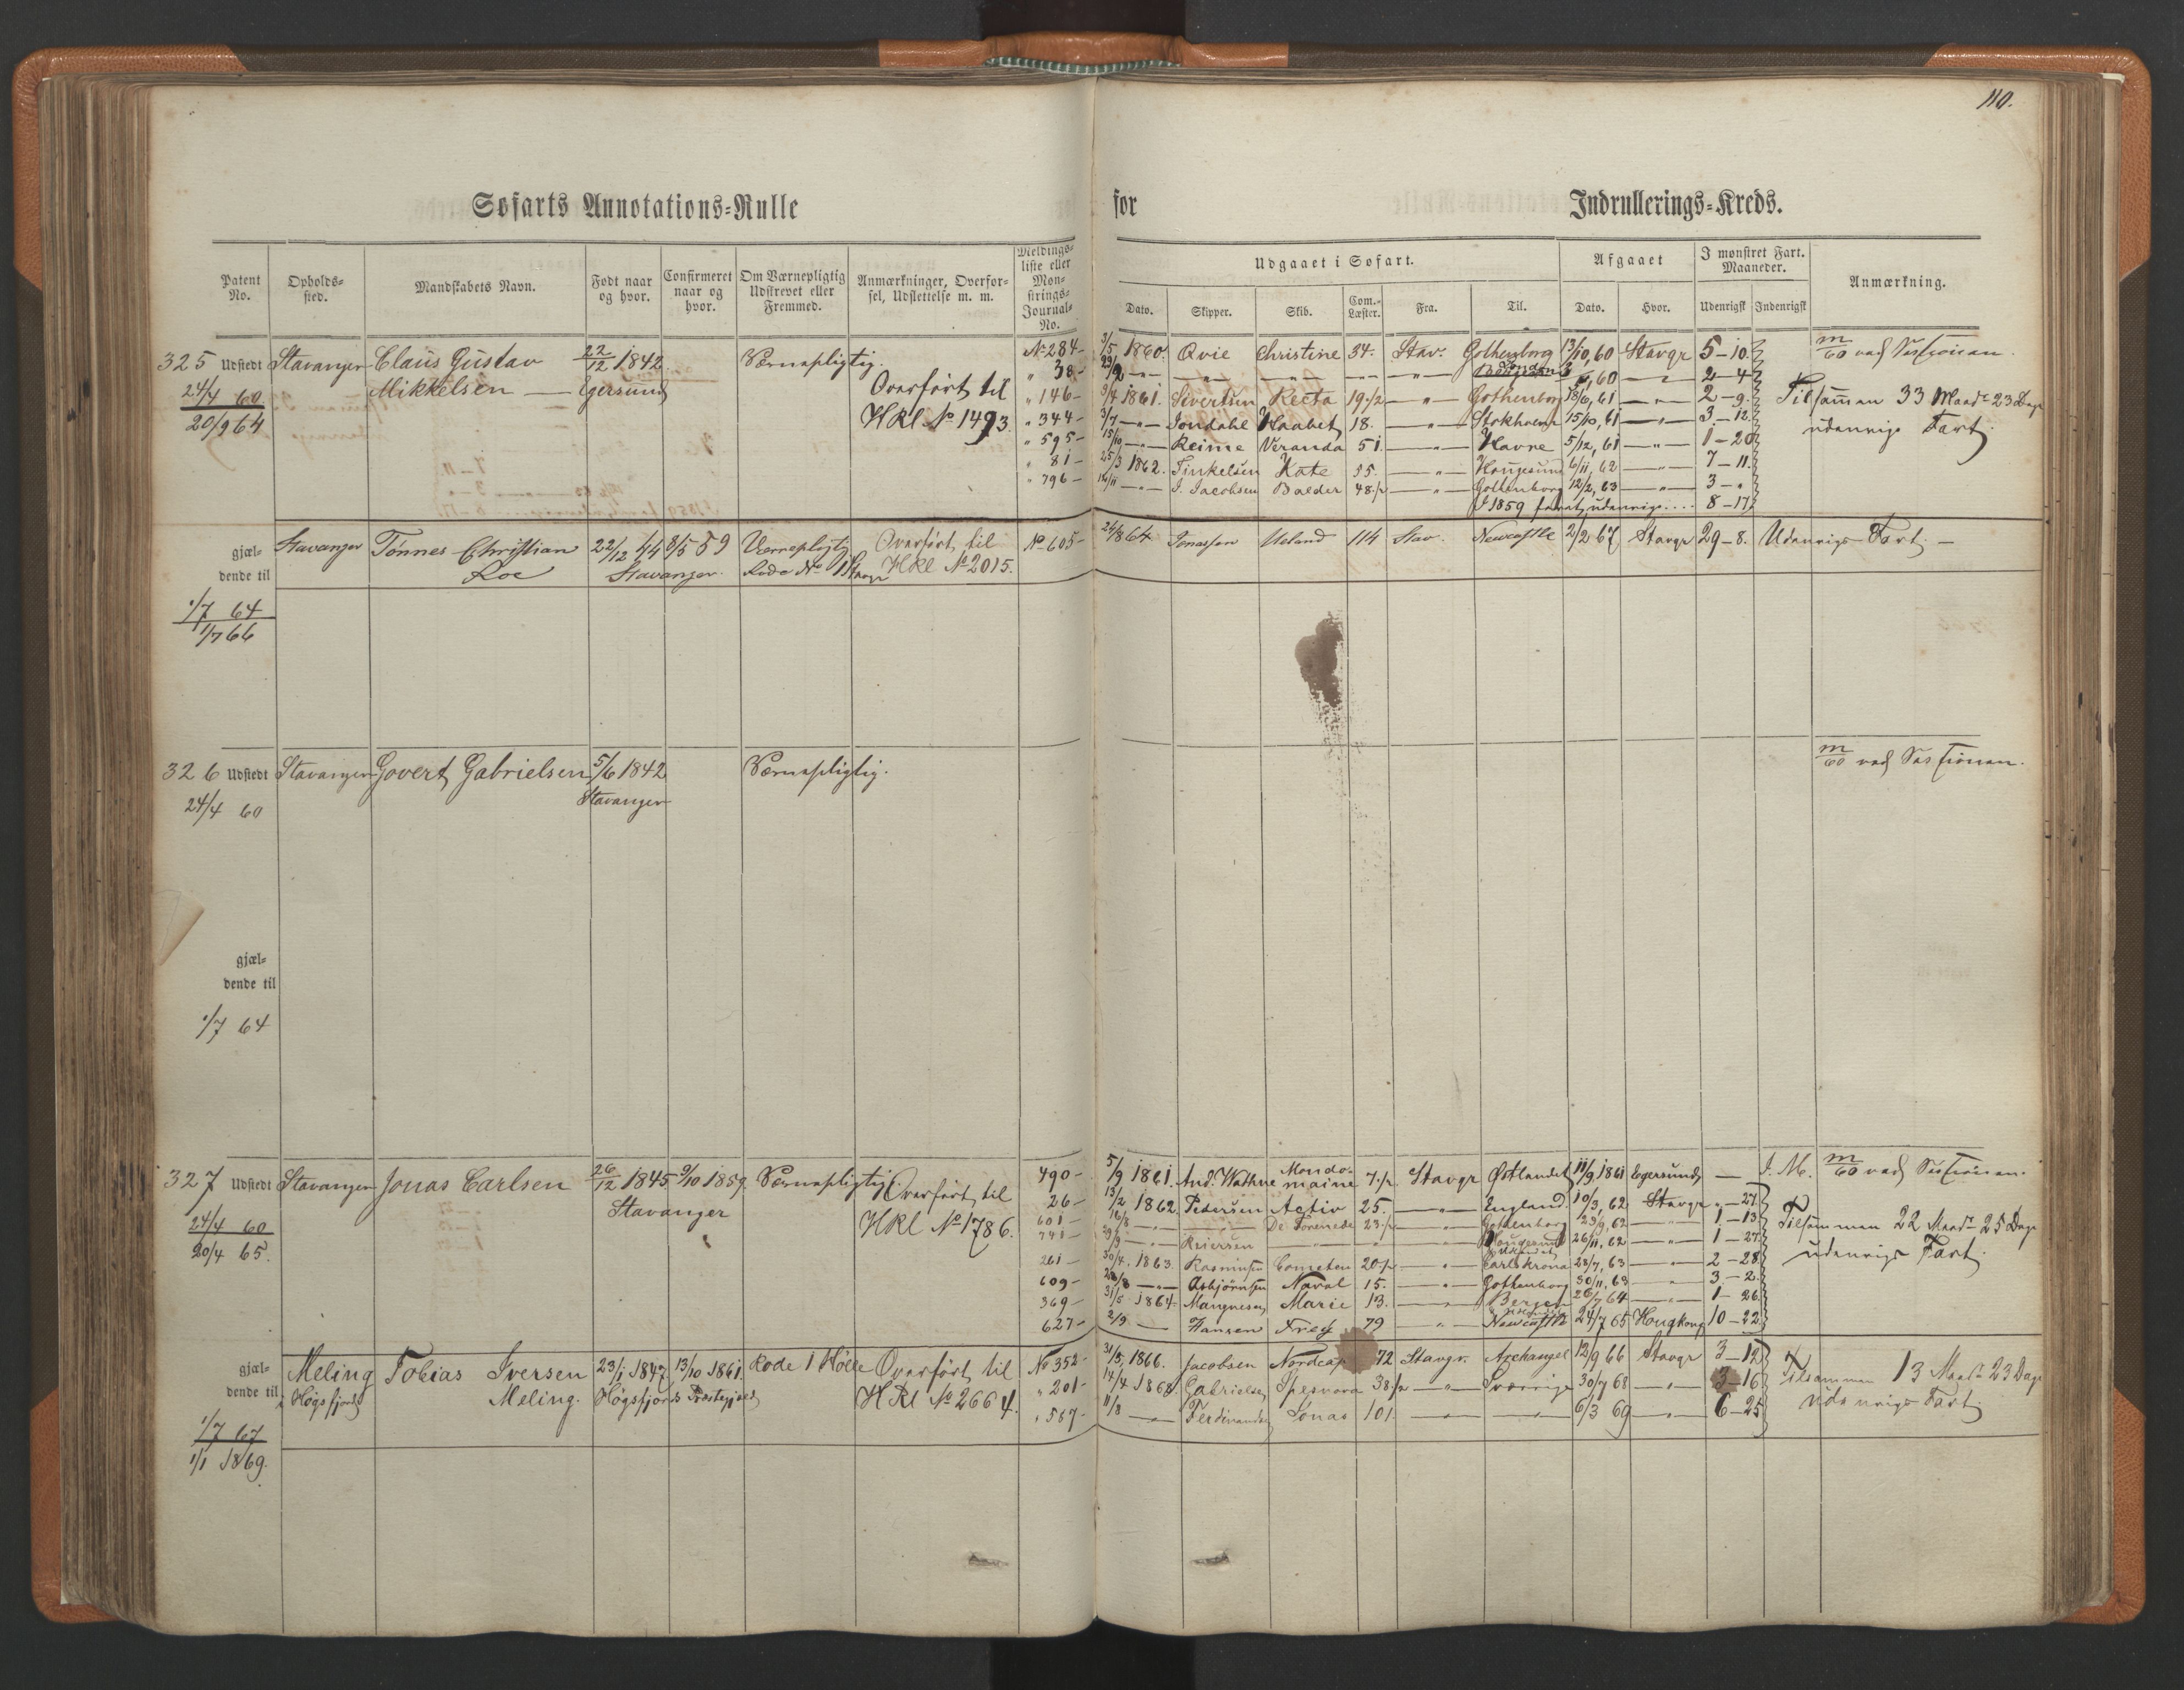 110.
Søfarts Annotations-Rulle
for
Indrullerings-Kreds.
Patent No.
Opholds-sted.
Mandskabets Navn.
Født naar og hvor.
Confirmeret naar og hvor.
Om Værnepligtig Udskrevet eller Fremmed.
Anmærkninger, Overførsel, Udslettelse m. m.
Meldings-liste eller Mønstrings-Journal-No.
Udgaaet i Søfart.
Dato.
Skipper.
Skib.
Com.-Læster.
Fra.
Til.
Afgaaet
Dato.
Hvor.
I mønstret Fart. Maaneder.
Udenrigsk
Indenrigsk
Anmærkning.
325 Udstedt Stavanger Claus Gustav 22/12 1842 Værnepligtig. No 284 3/5 1860. Qvie Christine 34. Stav. Gothenborg 13/10, 60 Stavgr 5-10
24/4 60 Mikkelsen — Egersund Overført til " 38 — " — 60 — " — 2-4
20/9 64 HKl No 1493. " 146 9/4 1861. Sivertsen Recta 19 1/2 — " — Gothenborg 18/6, 61 — " — 2-9. Tilsammen 33 Maadr 23 Dage
" 344 3/7 — " — Jondahl Haabet 18. — " — Stokholm 15/10, 61 — " — 3-12. udenrigs Fart.
" 595 15/10 — " — Reime Veranda 51. — " — Havre 5/12, 61 — " — 1-20
" 81 25/3 1862. Tinkelsen Kate 35. — " — Hougesund 6/11, 62 — " — 7-11.
" 796 — " — J. Jacobsen Balder 48 1/2 — " — Gothenborg 12/2, 63 — " — 3 - "
I 1859 faret udenrigs.... 8-17
gjæl-
dende til
Stavanger Tønnes Christian 22/12 44 8/5 59 Værnepligtig Overført til No 605 24/8 64 Jonassen Ueland 114 Stav. Newcastle 2/2 67 Stavgr 29-8. Udenrigs Fart. —
Roe Stavanger. Rode No 1 HKl No 2015.
1/7 64
1/7 66
326 Udstedt Stavanger Govert Gabrielsen 5/6 1842 Værnepligtig.
24/4 60 Stavanger
gjæl-
dende til
1/7 64
327 Udstedt Stavanger Jonas Carlsen 26/12 1845 9/10 1859. Værnepligtig. Overført til 490 5/9 1861. And. Wathne Mondo-maine 7 1/2 Stavgr Østlandet 11/9 1861 Egersund — I. M.
24/4 60 Stavanger HKl No 1786. 26 13/2 1862. Pedersen Activ 25. — " — England. 10/3, 62 Stavgr " - 27.
20/4 65. 601 16/8 — " — — " — De Forenede 23 1/2 — " — Gothenborg 23/9, 62 — " — 1-13 Tilsammen 22 Maadr 25 Dage
741 — " — Reiersen — " — — " — — " — Hougesund 26/11, 62 — " — 1-27. udenrigs Fart.
261 30/4. 1863. Rasmussen Cometen 20 1/2 — " — Carlskrona 28/7, 63 — " — 2-28
609 28/8 — " — Asbjørnsen Naval 15. — " — Gothenborg 30/11, 63 — " — 3-2.
369 31/5 1864. Mangnesen Marie 13. — " — Bergen 26/7 64 — " — 1-26.
627 2/9 — Hansen Frey 79 — " — Newcastle 24/7 65 Hougkong 10-22
gjæl-
dende til
Meling Tobias Iversen 23/1 1847 13/10 1861. Rode 1 Hølle Overført til No 352 31/5, 1866. Jacobsen Nordcap 72 Stavgr. Archangel 12/9 66 Stavgr 3-12
i Høgsfjord Meling. Høgsfjords Præstegjeld HRl No 2664. " 201 14/4 1868. Gabrielsen Spesnova 38 1/2 — " — Sverrige 30/7 68 — " — 3-16 Tilsammen 13 Maadr 23 Dage
" 567 11/8 — " — Ferdinandsen Jonas 101. — " — — " — 6/3 69 — " — 6-25 udenrigs Fart.
1/7 67
1/1 1869.